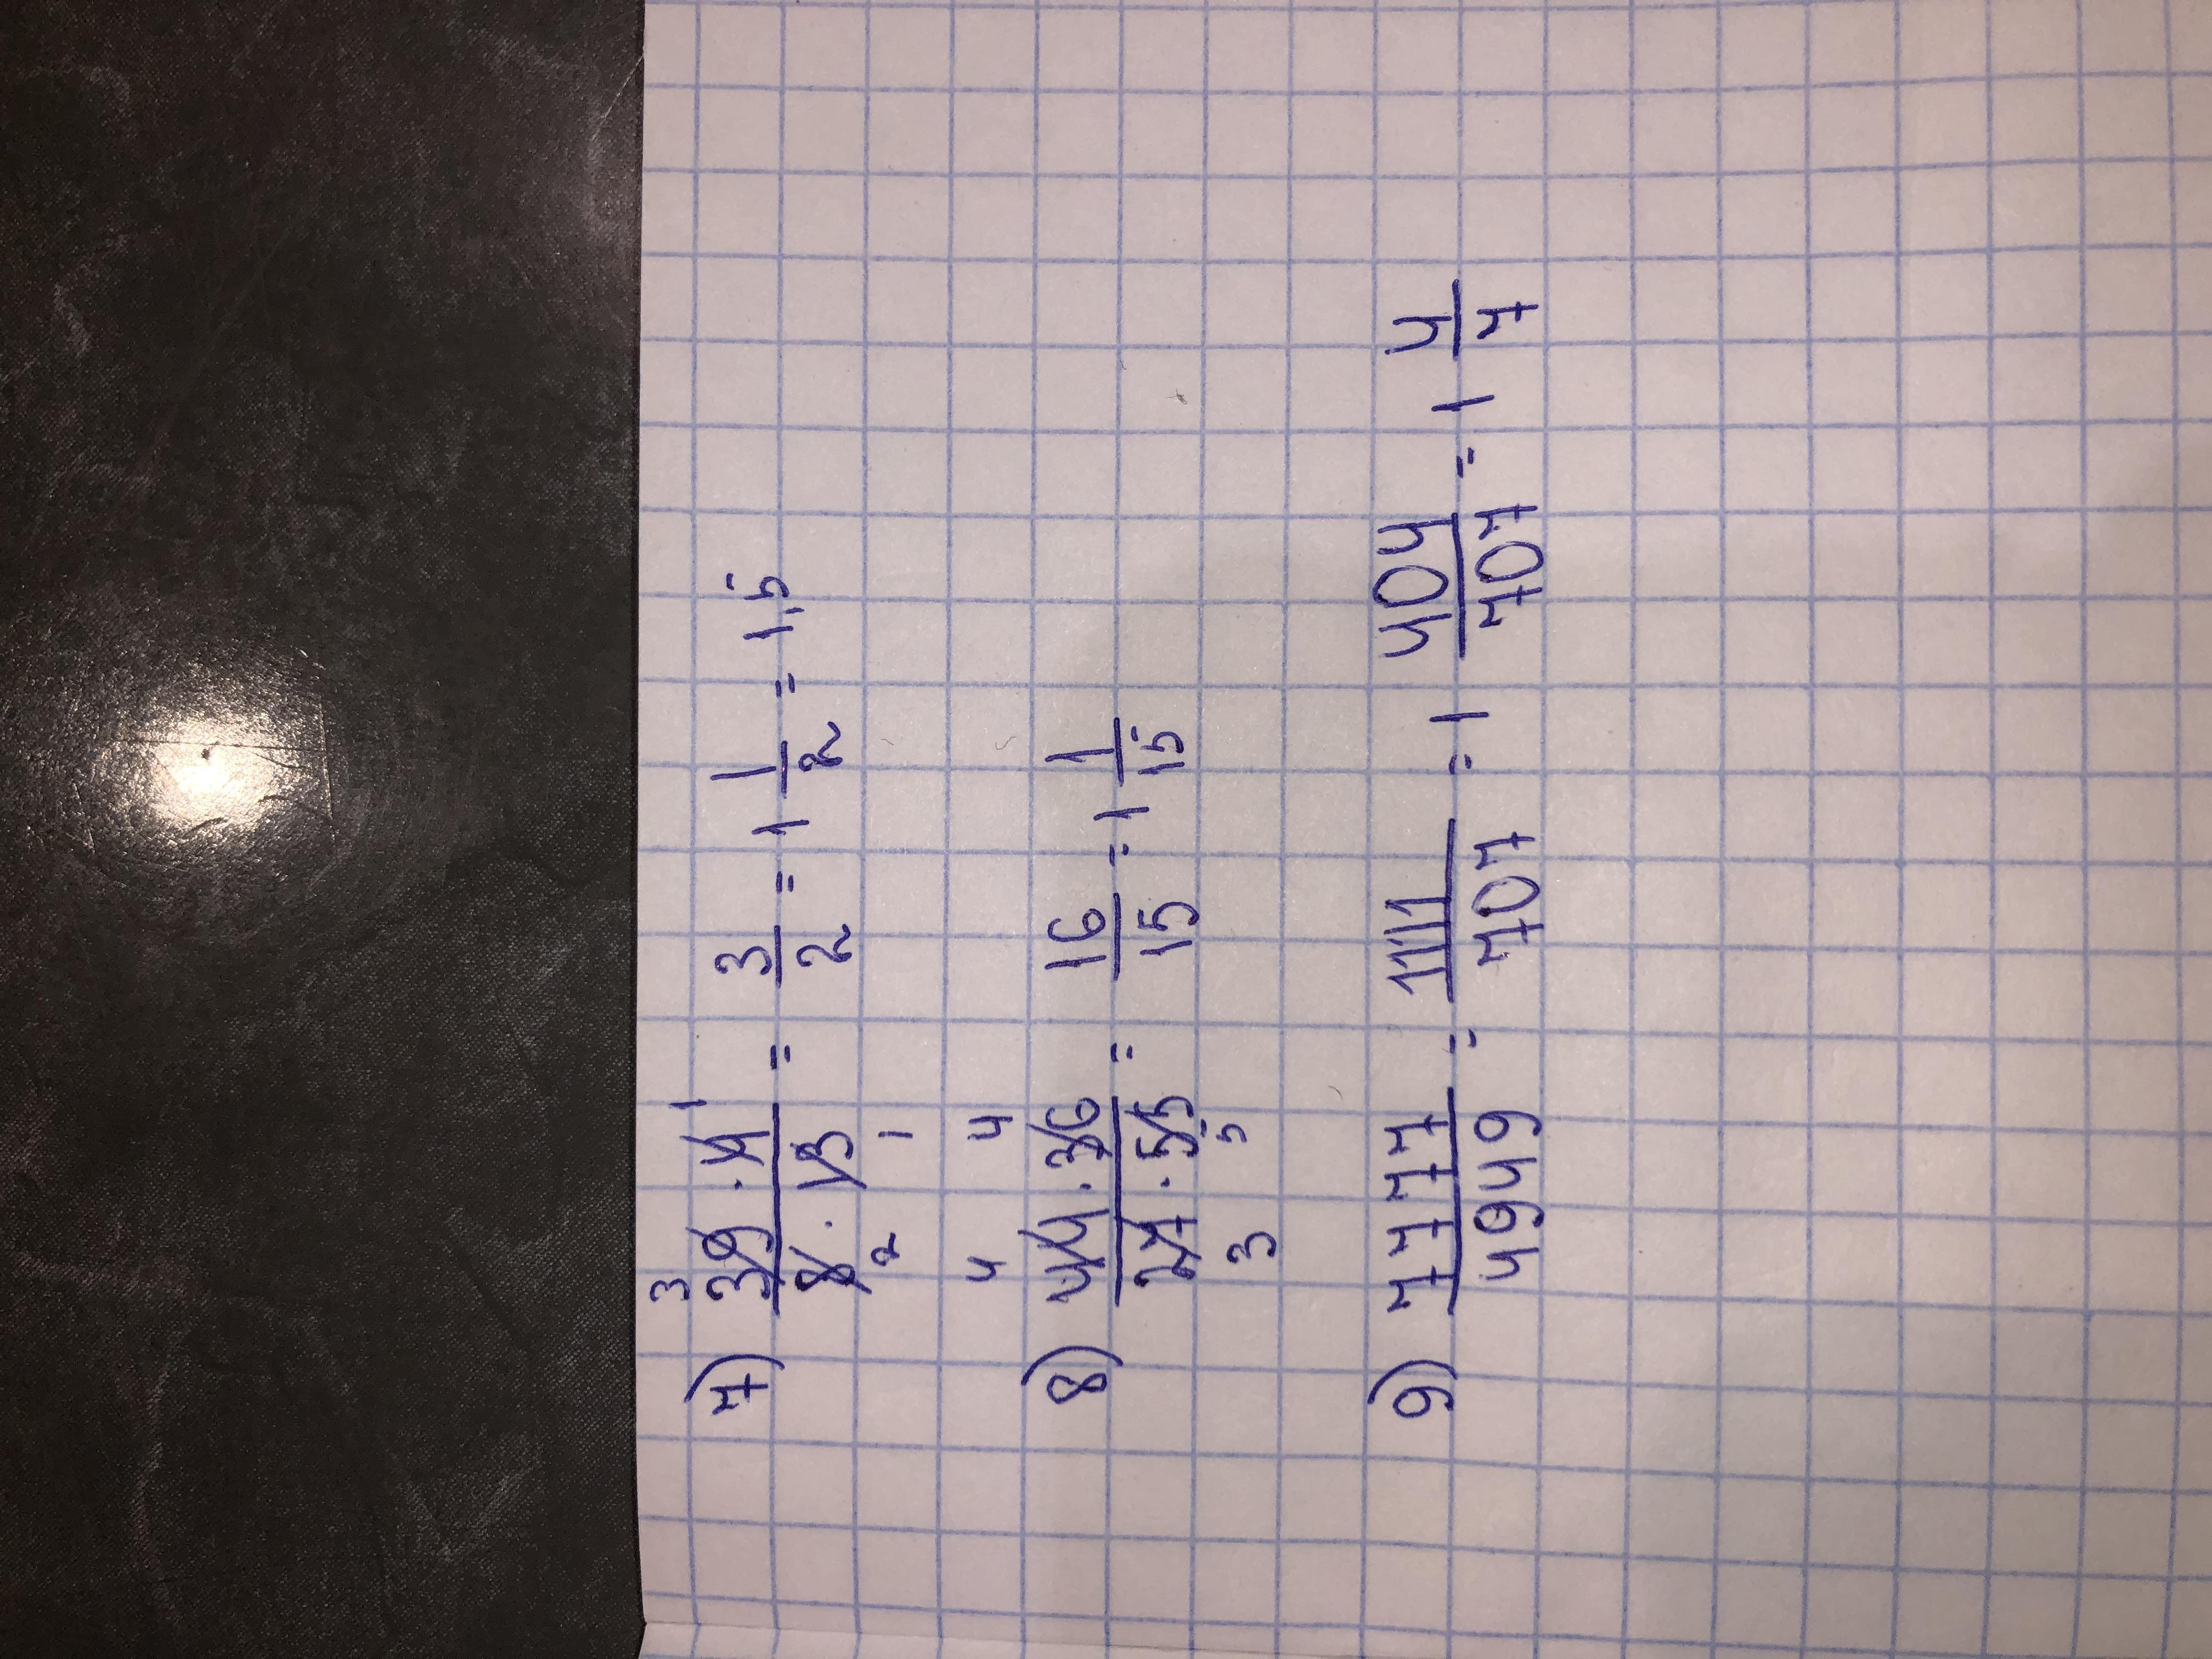 3 1
7) 39 · 4 / 8 · 13 = 3/2 = 1 1/2 = 1,5
2 1
4 4
8) 44 · 36 / 27 · 55 = 16/15 = 1 1/15
3 5
9) 7777/4949 = 1111/707 = 1 404/707 = 1 4/7